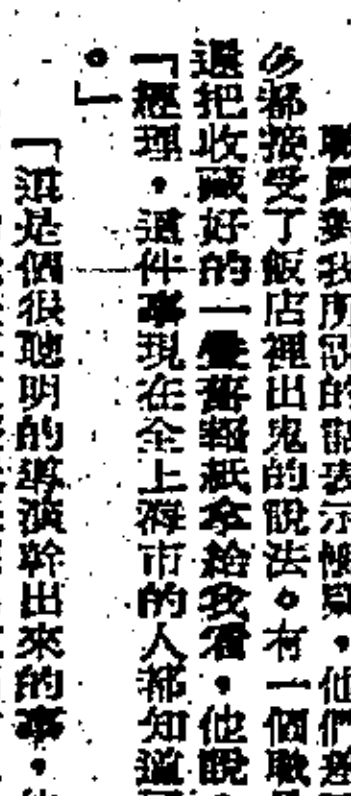 職員對我所說的話表示懷疑,他們差
的都接受了飯店裡出鬼的說法。有一個職
還把收藏好的一疊舊報紙拿給我看,他說
「經理,這件事現在全上海市的人都知道
。」
「這是個很聰明的導演幹出來的事,